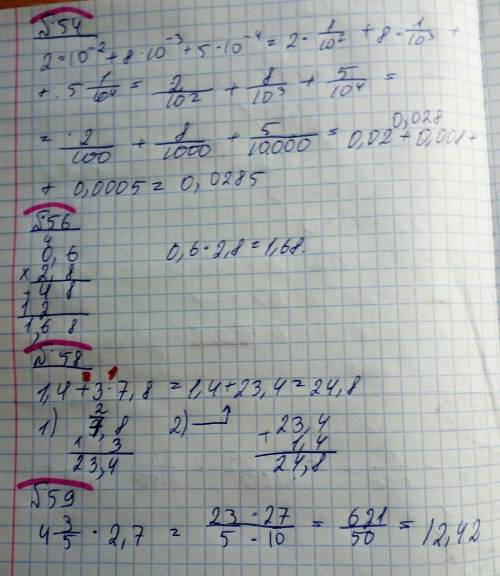 №54
2·10⁻² + 8·10⁻³ + 5·10⁻⁴ = 2·1/10² + 8·1/10³ +
+ 5·1/10⁴ = 2/10² + 8/10³ + 5/10⁴ =
0,028
= 2/100 + 8/1000 + 5/10000 = 0,02 + 0,001 +
+ 0,0005 = 0,0285
№56
4
0,6
0,6·2,8 = 1,68.
× 2,8
+ 4 8
1 2
1,6 8
№58
1,4 + 3·7,8 = 1,4 + 23,4 = 24,8
1) 2
7,8
2)
23,4
3
+ 1,4
23,4
24,8
№59
4 3/5 · 2,7 = 23·27/5·10 = 621/50 = 12,42